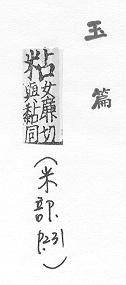 玉篇
粘女廉切與黏同
（米部．P.231）